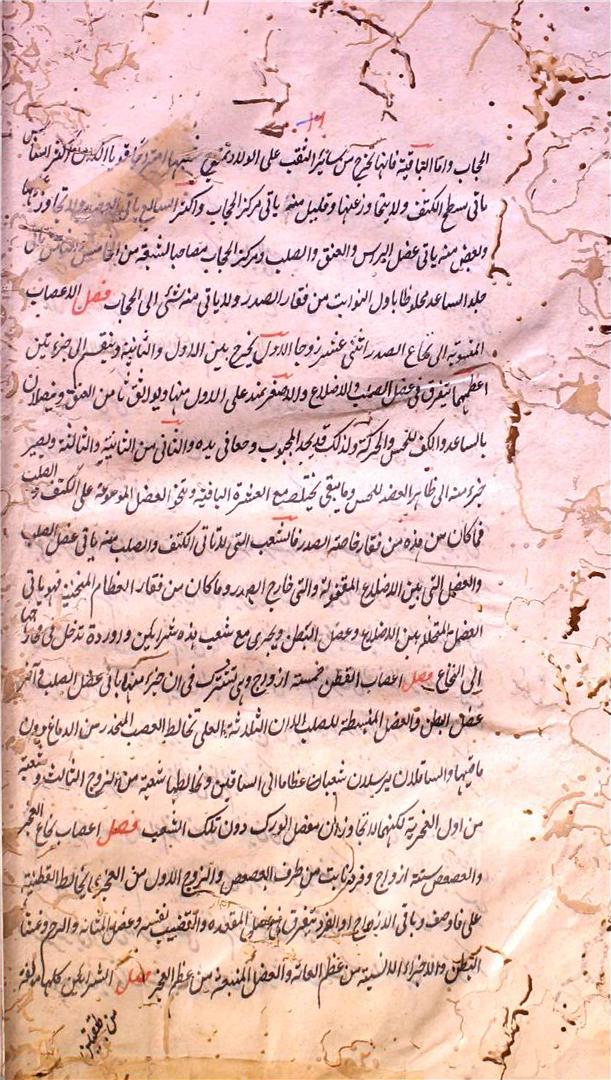 الحجاب واما الباقية فانها تخرج من سائر الثقب على الولاء
ياتى سطح الكتف ولا يتجاوز عنها وقليل منه ياتى مركز الحجاب واكثر السابع ياتى العضد ولا يتجاوزها
وبعض منه ياتى عضل الراس والعنق والصلب ومركز الحجاب مصاحبا لشعبة من الخامس والثامن ياتى
جلد الساعد مخلوطا باول النوابت من فقار الصدر ولا ياتى منه شئ الى الحجاب فصل الاعصاب
المنسوبة الى نخاع الصدر اثنى عشر زوجا الاول يخرج بين الاول والثانية وينقسم الى جزءين
اعظمهما يتفرق فى عضل الصلب والاضلاع والاصغر يمتد على الاول منها ويوافق ثامن العنق ويتصلان
بالساعد والكف للحس والحركة ولذلك قد يجد المجنوب وجعا فى يده والثانى من الثانية والثالثة ويصير
جزء منه الى ظاهر العضد للحس وما يبقى يختلط مع العشرة الباقية ونحو العضل الموضوعة على الكتف و الصلب
فما كان من هذه من فقار خاصة الصدر فالشعب التى لا تاتى الكتف والصلب منه ياتى عضل الصلب
والعضل التى بين الاضلاع المقفولة والتى خارج الصدر وما كان من فقار العظام المنحنية فهو ياتى
العضل المتخللة بين الاضلاع وعضل البطن ويجرى مع شعب هذه شرايين واوردة تدخل فى مخارجها
الى النخاع فصل اعصاب القطن خمسة ازواج وهى تشترك فى ان جزء منه ياتى عضل الصلب و آخر
عضل البطن والعضل المنبسطة للصلب الا ان الثلاثة العلى تخالط العصب المنحدر من الدماغ دون
ما فيها والسافلان يرسلان شعبا عظاما الى الساقين وتخالطها شعبة من الزوج الثالث وشعبة
من اول العجزية لكنهما لا تجاوزان مفصل الورك دون تلك الشعب فصل اعصاب نخاع العجز
والعصعص ستة ازواج وفرد نابت من طرف العصعص والزوج الاول من العجزى يخالط القطنية
على ما وصف وباقى الازواج والفرد يتفرق فى عضل المقعدة والقضيب نفسه وعضل المثانة والرحم وغشاء
البطن والاجزاء الانسية من عظم العانة والعضل المنبعثة من عظم العجز فصل الشرايين كلها مولفة
من طبقتين